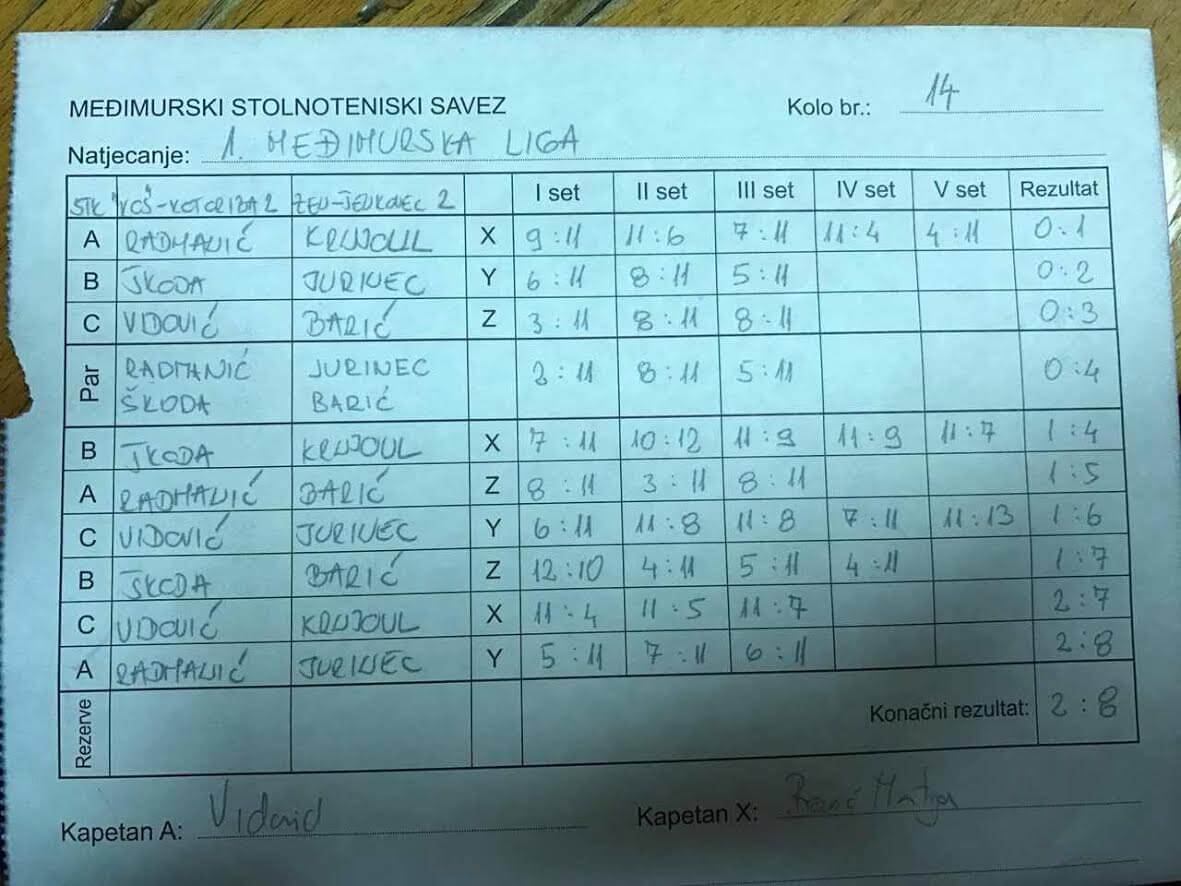 MEĐIMURSKI STOLNOTENISKI SAVEZ Kolo br.: 14
Natjecanje: 1. MEĐIMURSKA LIGA
STK "KOŠ-KOTORIBA 2 I set II set III set IV set V set Rezultat
A RADMANIĆ X 9:11 11:6 7:11 11:4 4:11 0:1
B ŠKODA JURINEC Y 6:11 8:11 5:11 0:2
C VIDOVIĆ BARIĆ Z 3:11 8:11 8:11 0:3
Par RADMANIĆ JURINEC 2:11 8:11 5:11 0:4
ŠKODA BARIĆ
B ŠKODA X 7:11 10:12 11:9 11:9 11:7 1:4
A RADMANIĆ BARIĆ Z 8:11 3:11 8:11 1:5
C VIDOVIĆ JURINEC Y 6:11 11:8 11:8 7:11 11:13 1:6
B ŠKODA BARIĆ Z 12:10 4:11 5:11 4:11 1:7
C VIDOVIĆ X 11:4 11:5 11:7 2:7
A RADMANIĆ JURINEC Y 5:11 7:11 6:11 2:8
Rezerve Konačni rezultat: 2:8
Kapetan A: Vidović Kapetan X: